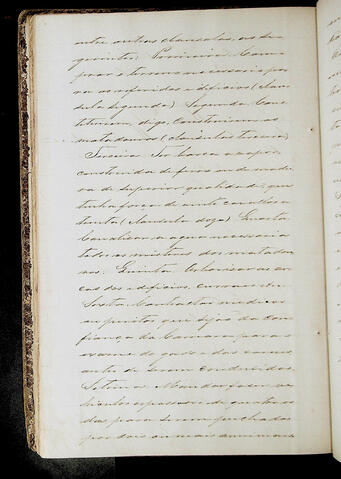 entre outras clausulas, as se-
guintes: Primeira: Com-
prar o terreno necessario pa-
ra os referidos edificios (clau-
sula segunda) Segunda Cons-
tituirem, digo Construirem os
matadouros (clausula terceira)
Terceira Ter barca a vapor
construida de ferro ou de madei-
ra de superior qualidade, que
tenha força de vinte cavallos e
tenta (clausula doze) Quarta
Canalisar a agua necessaria
todos os misteres dos matadou-
ros. Quinta Arborisar as cer-
cas dos edificios,
Sexta Contractar medicos
ou peritos que sejão da con-
fiança da Camara para o
exame do gado e das carnes
antes de serem condusidas.
Setima Mandar fazer ve-
hiculos espaçosos de quatro ro-
das para serem puchados
por dois ou mais animaes